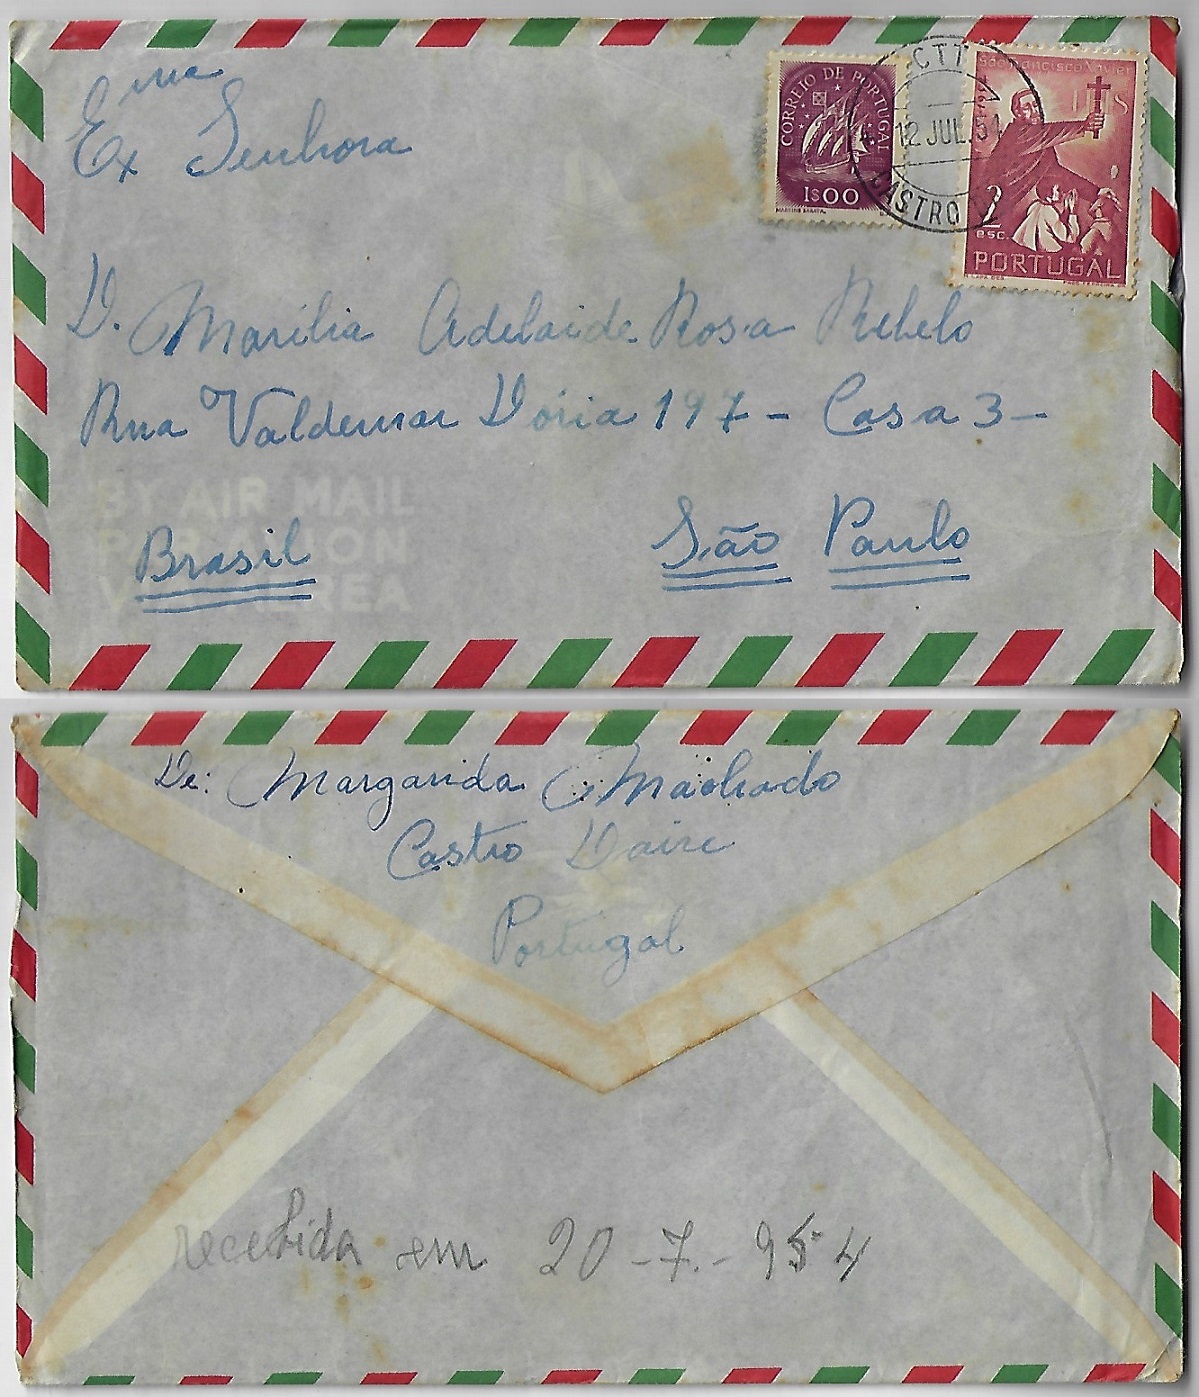 Exma
Senhora
D. Marília Adelaide Rosa Rebelo
Rua Valdemar Doria 197 - Casa 3 -
Brasil
São Paulo
BY AIR MAIL
PAR AVION
VIA AEREA
CORREIO DE PORTUGAL
1$00
São Francisco Xavier
2
esc.
PORTUGAL
CTT
12 JUL. 54
CASTRO
De: Margarida Machado
Castro Daire
Portugal
recebida em 20-7.-954